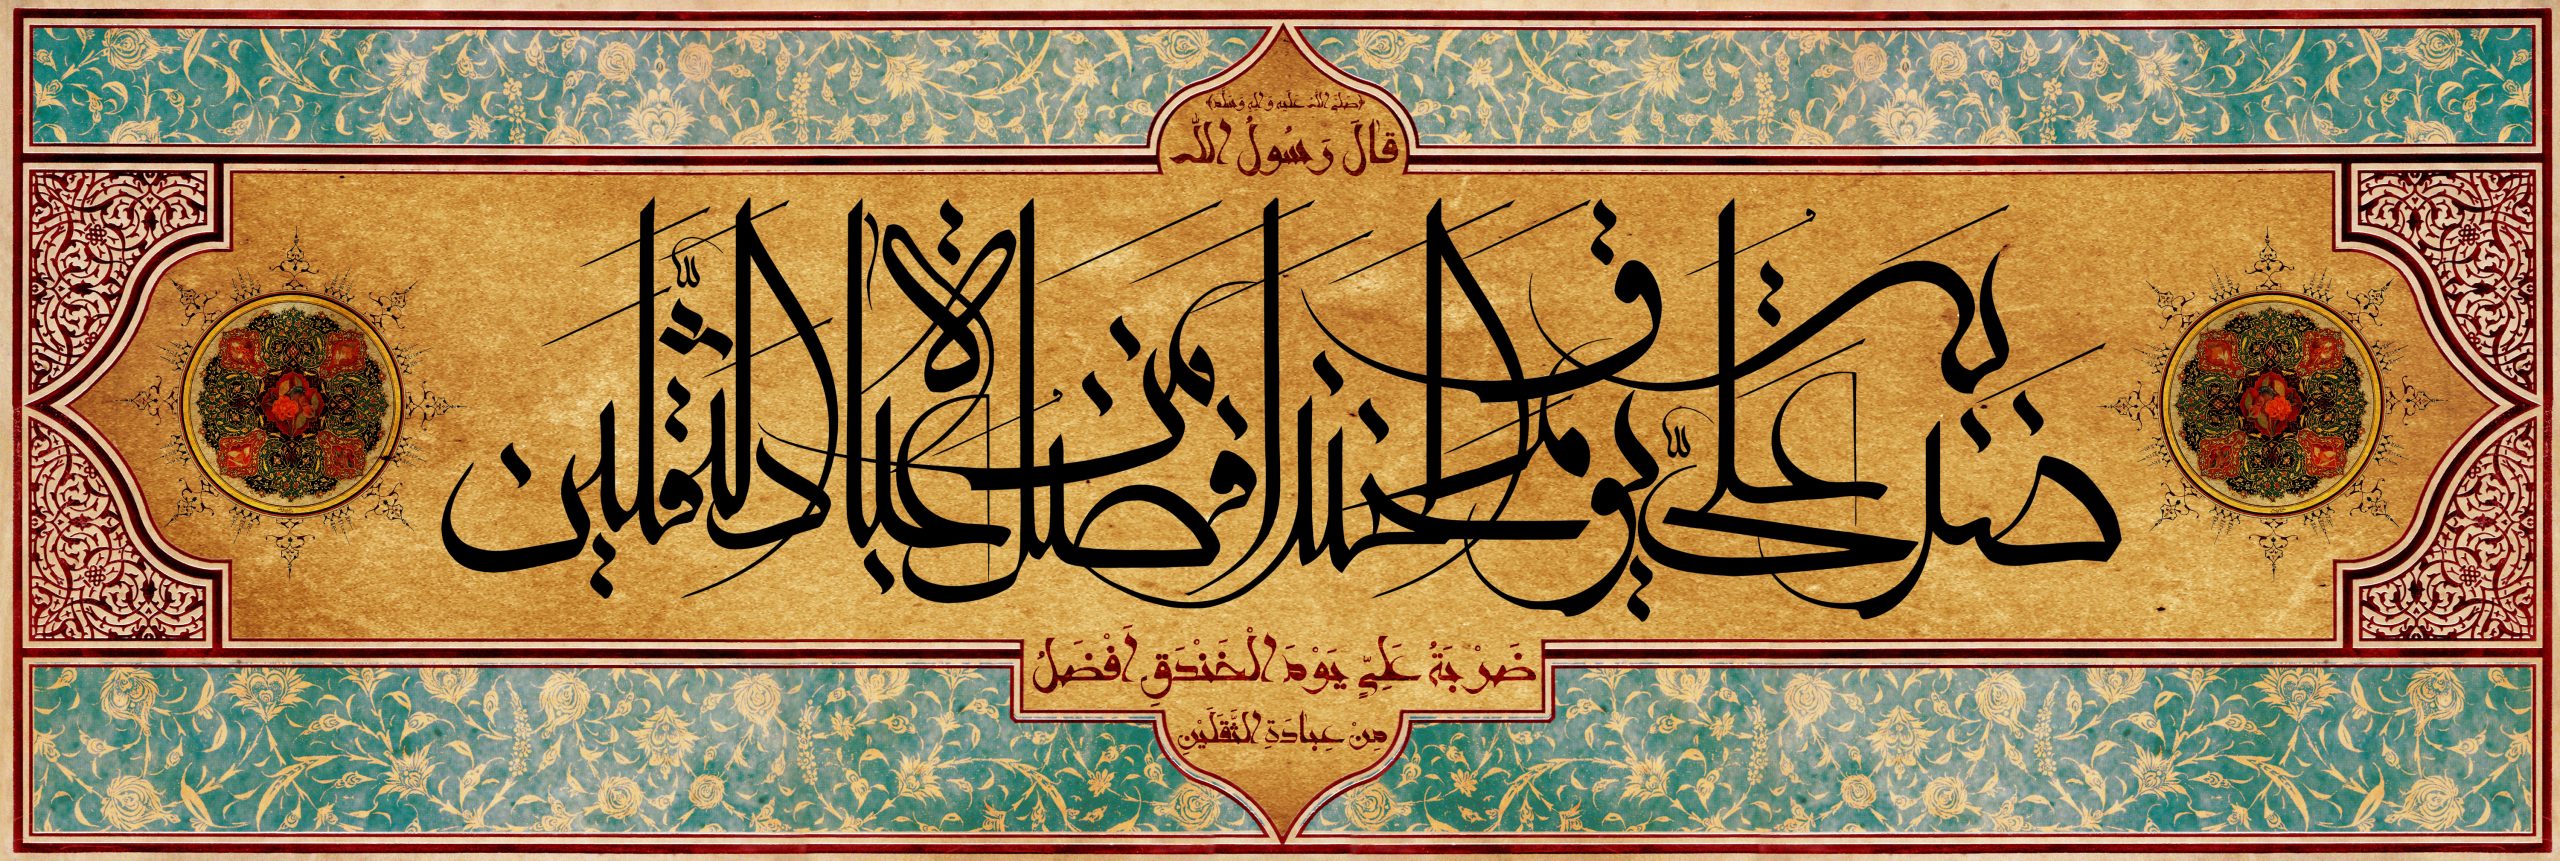 ﴿صَلَّى اللّٰهُ عَلَيْهِ وَ الِهِ وَ سَلَّم﴾
قٰالَ رَسُولُ اللّٰه
ضربة عليّ يوم الخندق افضل من عبادة الثّقلين
ضَرْبَةُ عَلِيٍّ يَوْمَ الْخَنْدَقِ اَفْضَلُ
مِنْ عِبادَةِ الثَّقَلَيْن